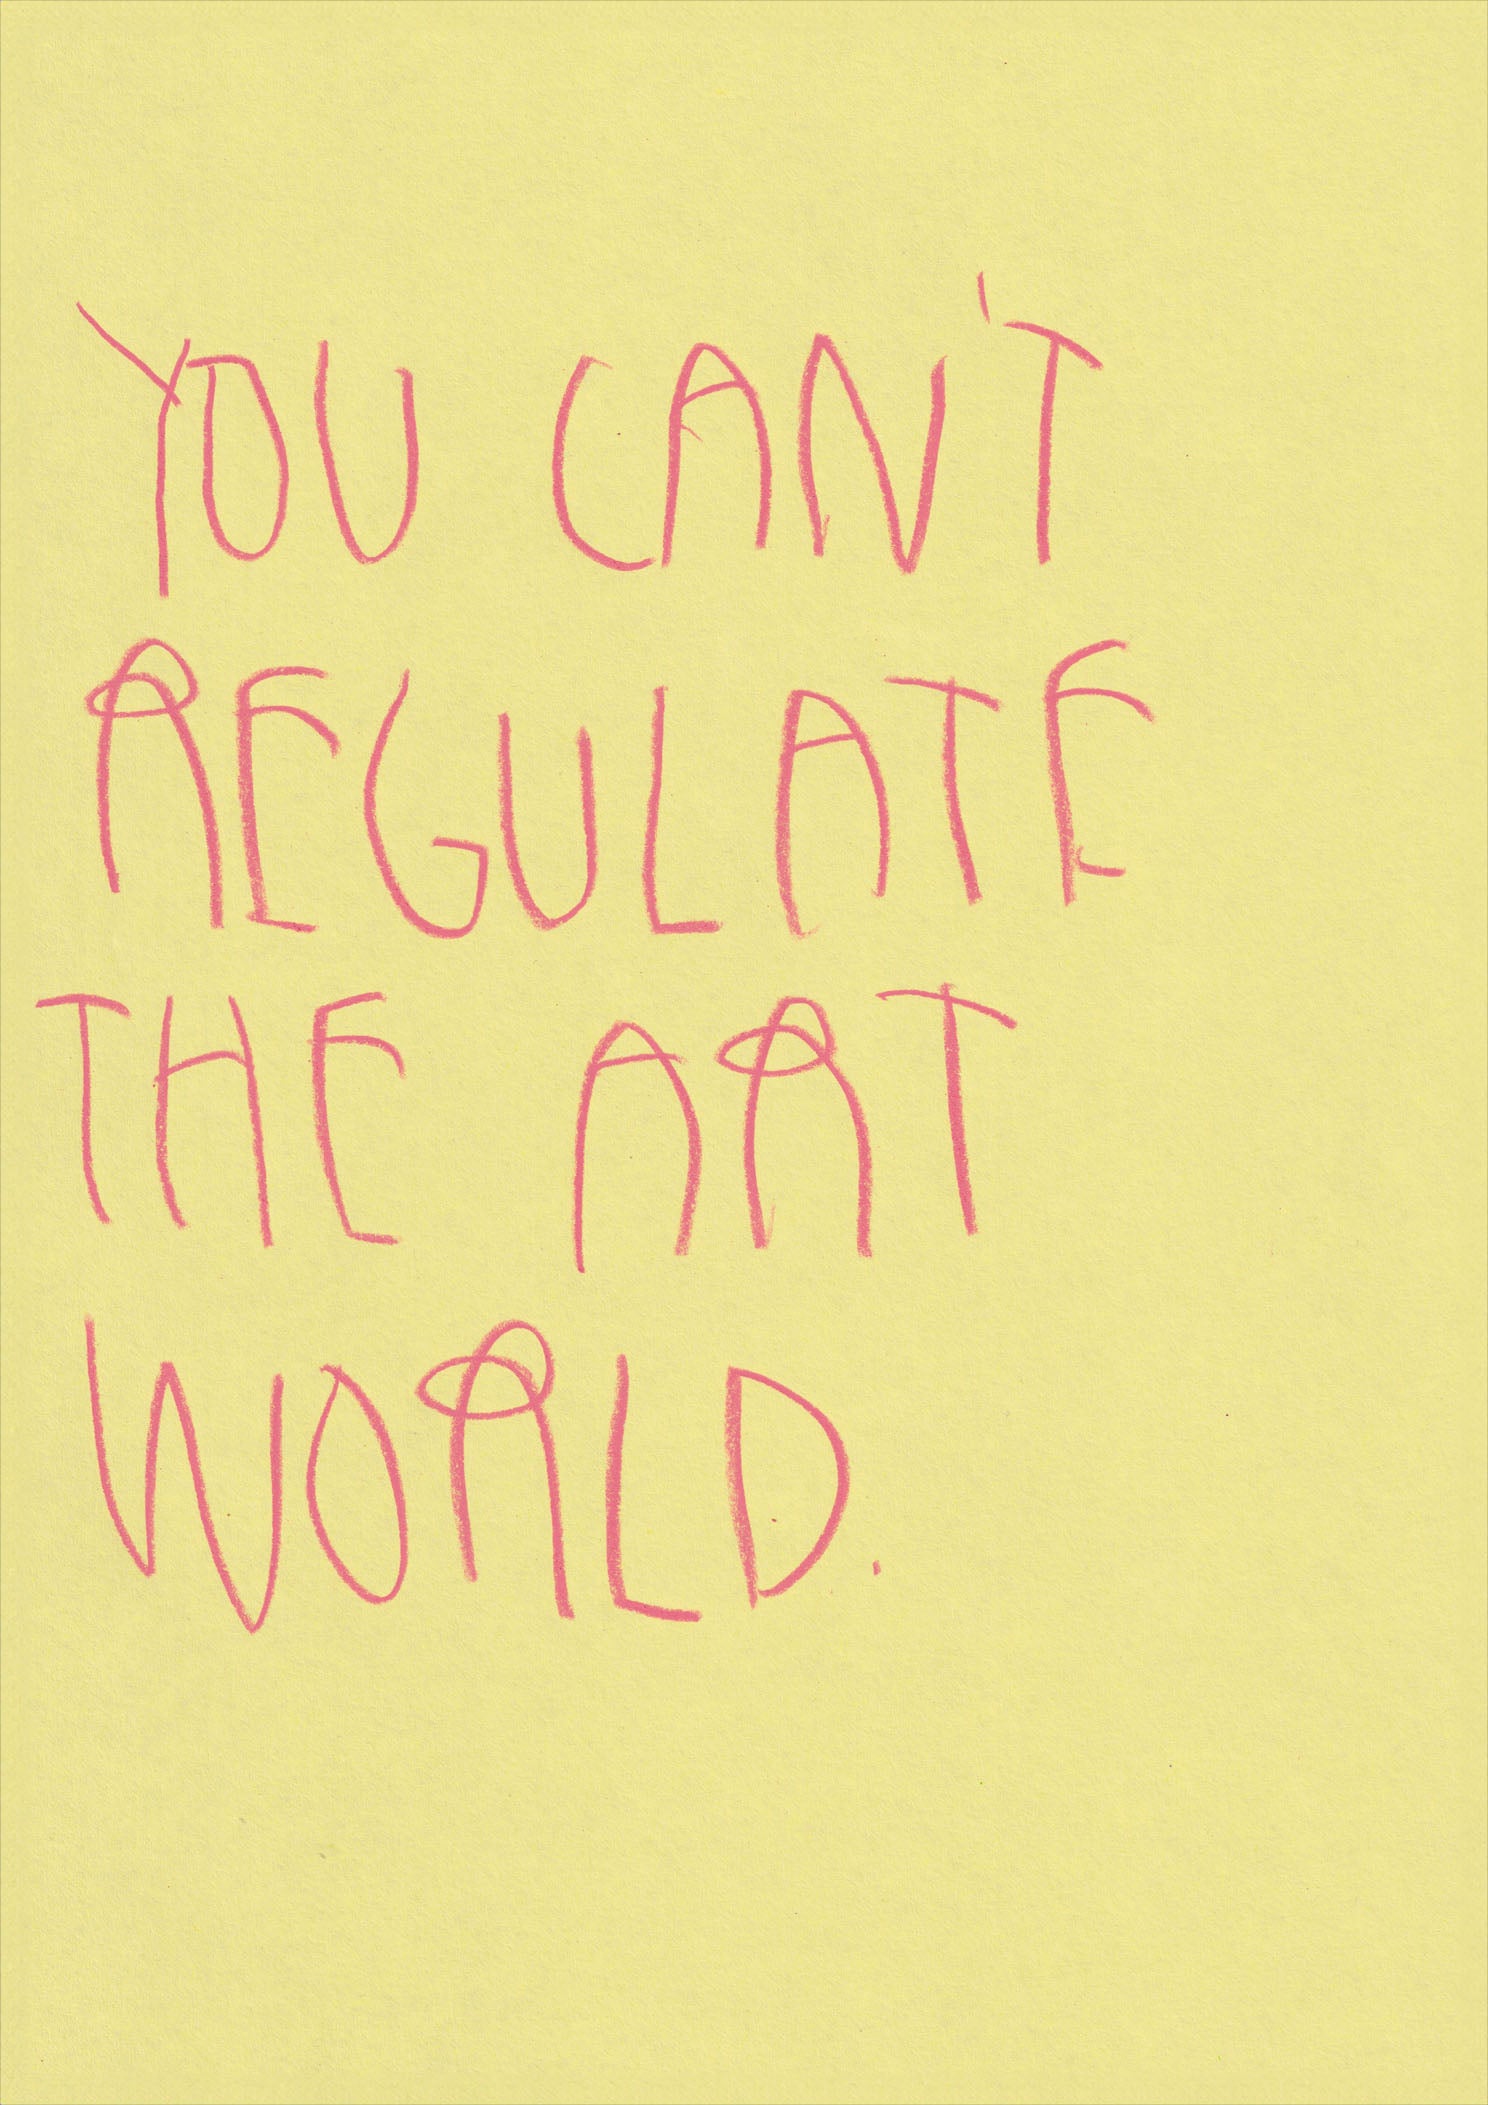 YOU CAN'T
REGULATE
THE ART
WORLD.